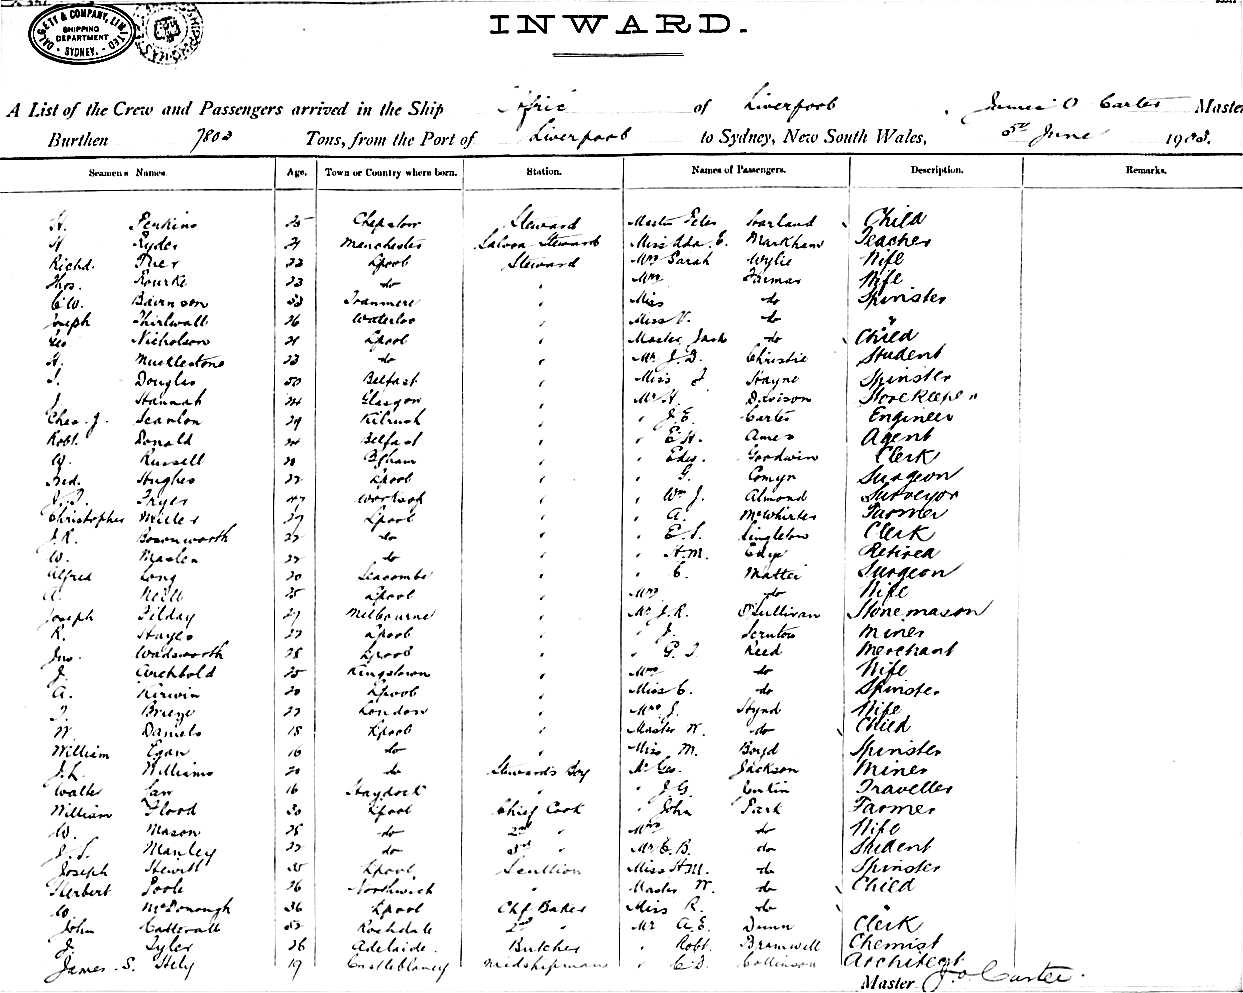 DALGETY & COMPANY, LIMITED
SHIPPING DEPARTMENT
SYDNEY.
INWARD.
A List of the Crew and Passengers arrived in the Ship Afric of Liverpool, James O Carter Master
Burthen 7803 Tons, from the Port of Liverpool to Sydney, New South Wales, 5th June 1903.
Seamens Names. Age. Town or Country where born. Station. Names of Passengers. Description. Remarks.
H. Perkins 25 Chepstow Steward Master Peter Garland Child
H Ryder 21 Manchester Saloon Steward Miss Ada. E. Markham Teacher
Richd. Iner 22 Lpool Steward Mrs Sarah Wylie Wife
Thos. Rourke 23 do " Mrs Farmar Wife
C.W. Bairnson 33 Tranmere " Miss do Spinster
Joseph Thirlwall 26 Waterloo " Miss V. do "
Geo Nicholson 21 Lpool " Master Jack do Child
H. Mucklestone 23 do " Mr J.D. Christie Student
T. Douglas 50 Belfast " Miss J Hayne Spinster
J. Hannah 24 Glasgow " Mr H. Davison Storekeeper
Chas. J. Scanlon 29 Kilrush " " J.E. Carter Engineer
Robt. Donald 24 Belfast " " E.H. Ames Agent
W. Russell 28 B'ham " " Edw. Goodwin Clerk
Fred. Hughes 22 Lpool " " G. Comyn Surgeon
J.T. Fryer 47 Worksop " " Wm J. Almond Surveyor
Christopher Miller 29 Lpool " " A. McWhirter Farmer
J.R. Bosomworth 22 do " " E.S. Singleton Clerk
W. Maslen 22 do " " H.M. Edye Retired
Alfred Long 20 Seacombe " " E. Mattei Surgeon
A. Neill 25 Lpool " Mrs do Wife
Joseph Pilday 27 Melbourne " Mr J.R. O'Sullivan Stonemason
R. Hayes 22 Lpool " " J. Scruton Miner
Jno. Wadsworth 28 Lpool " " G.T. Reed Merchant
J. Archbold 25 Kingstown " Mrs do Wife
A. Kirwin 20 Lpool " Miss C. do Spinster
T. Breeze 22 London " Mrs J. Hynd Wife
W. Daniels 18 Lpool " Master W. do Child
William Egan 16 do " Miss M. Boyd Spinster
J.L. Williams 20 do Steward's Boy Mr Geo. Jackson Miner
Walter Law 16 Haydock " " J.G. Junkin Traveller
William Flood 30 Lpool Chief Cook " John Park Farmer
W. Mason 28 do 2nd " Mrs do Wife
J.S. Manley 22 do 3rd " Mr C.B. do Student
Joseph Hewitt 35 Lpool Scullion Miss H.M. do Spinster
Herbert Poole 26 Northwich " Master W. do Child
W McDonough 36 Lpool Chf Baker Miss R. do "
John Catterall 23 Rochdale 2nd " Mr A.E. Dunn Clerk
J. Tyler 26 Adelaide. Butcher " Robt. Bramwell Chemist
James. S. Hely 19 Castleblaney Midshipman " C.D. Collinson Architect
Master J.O Carter.